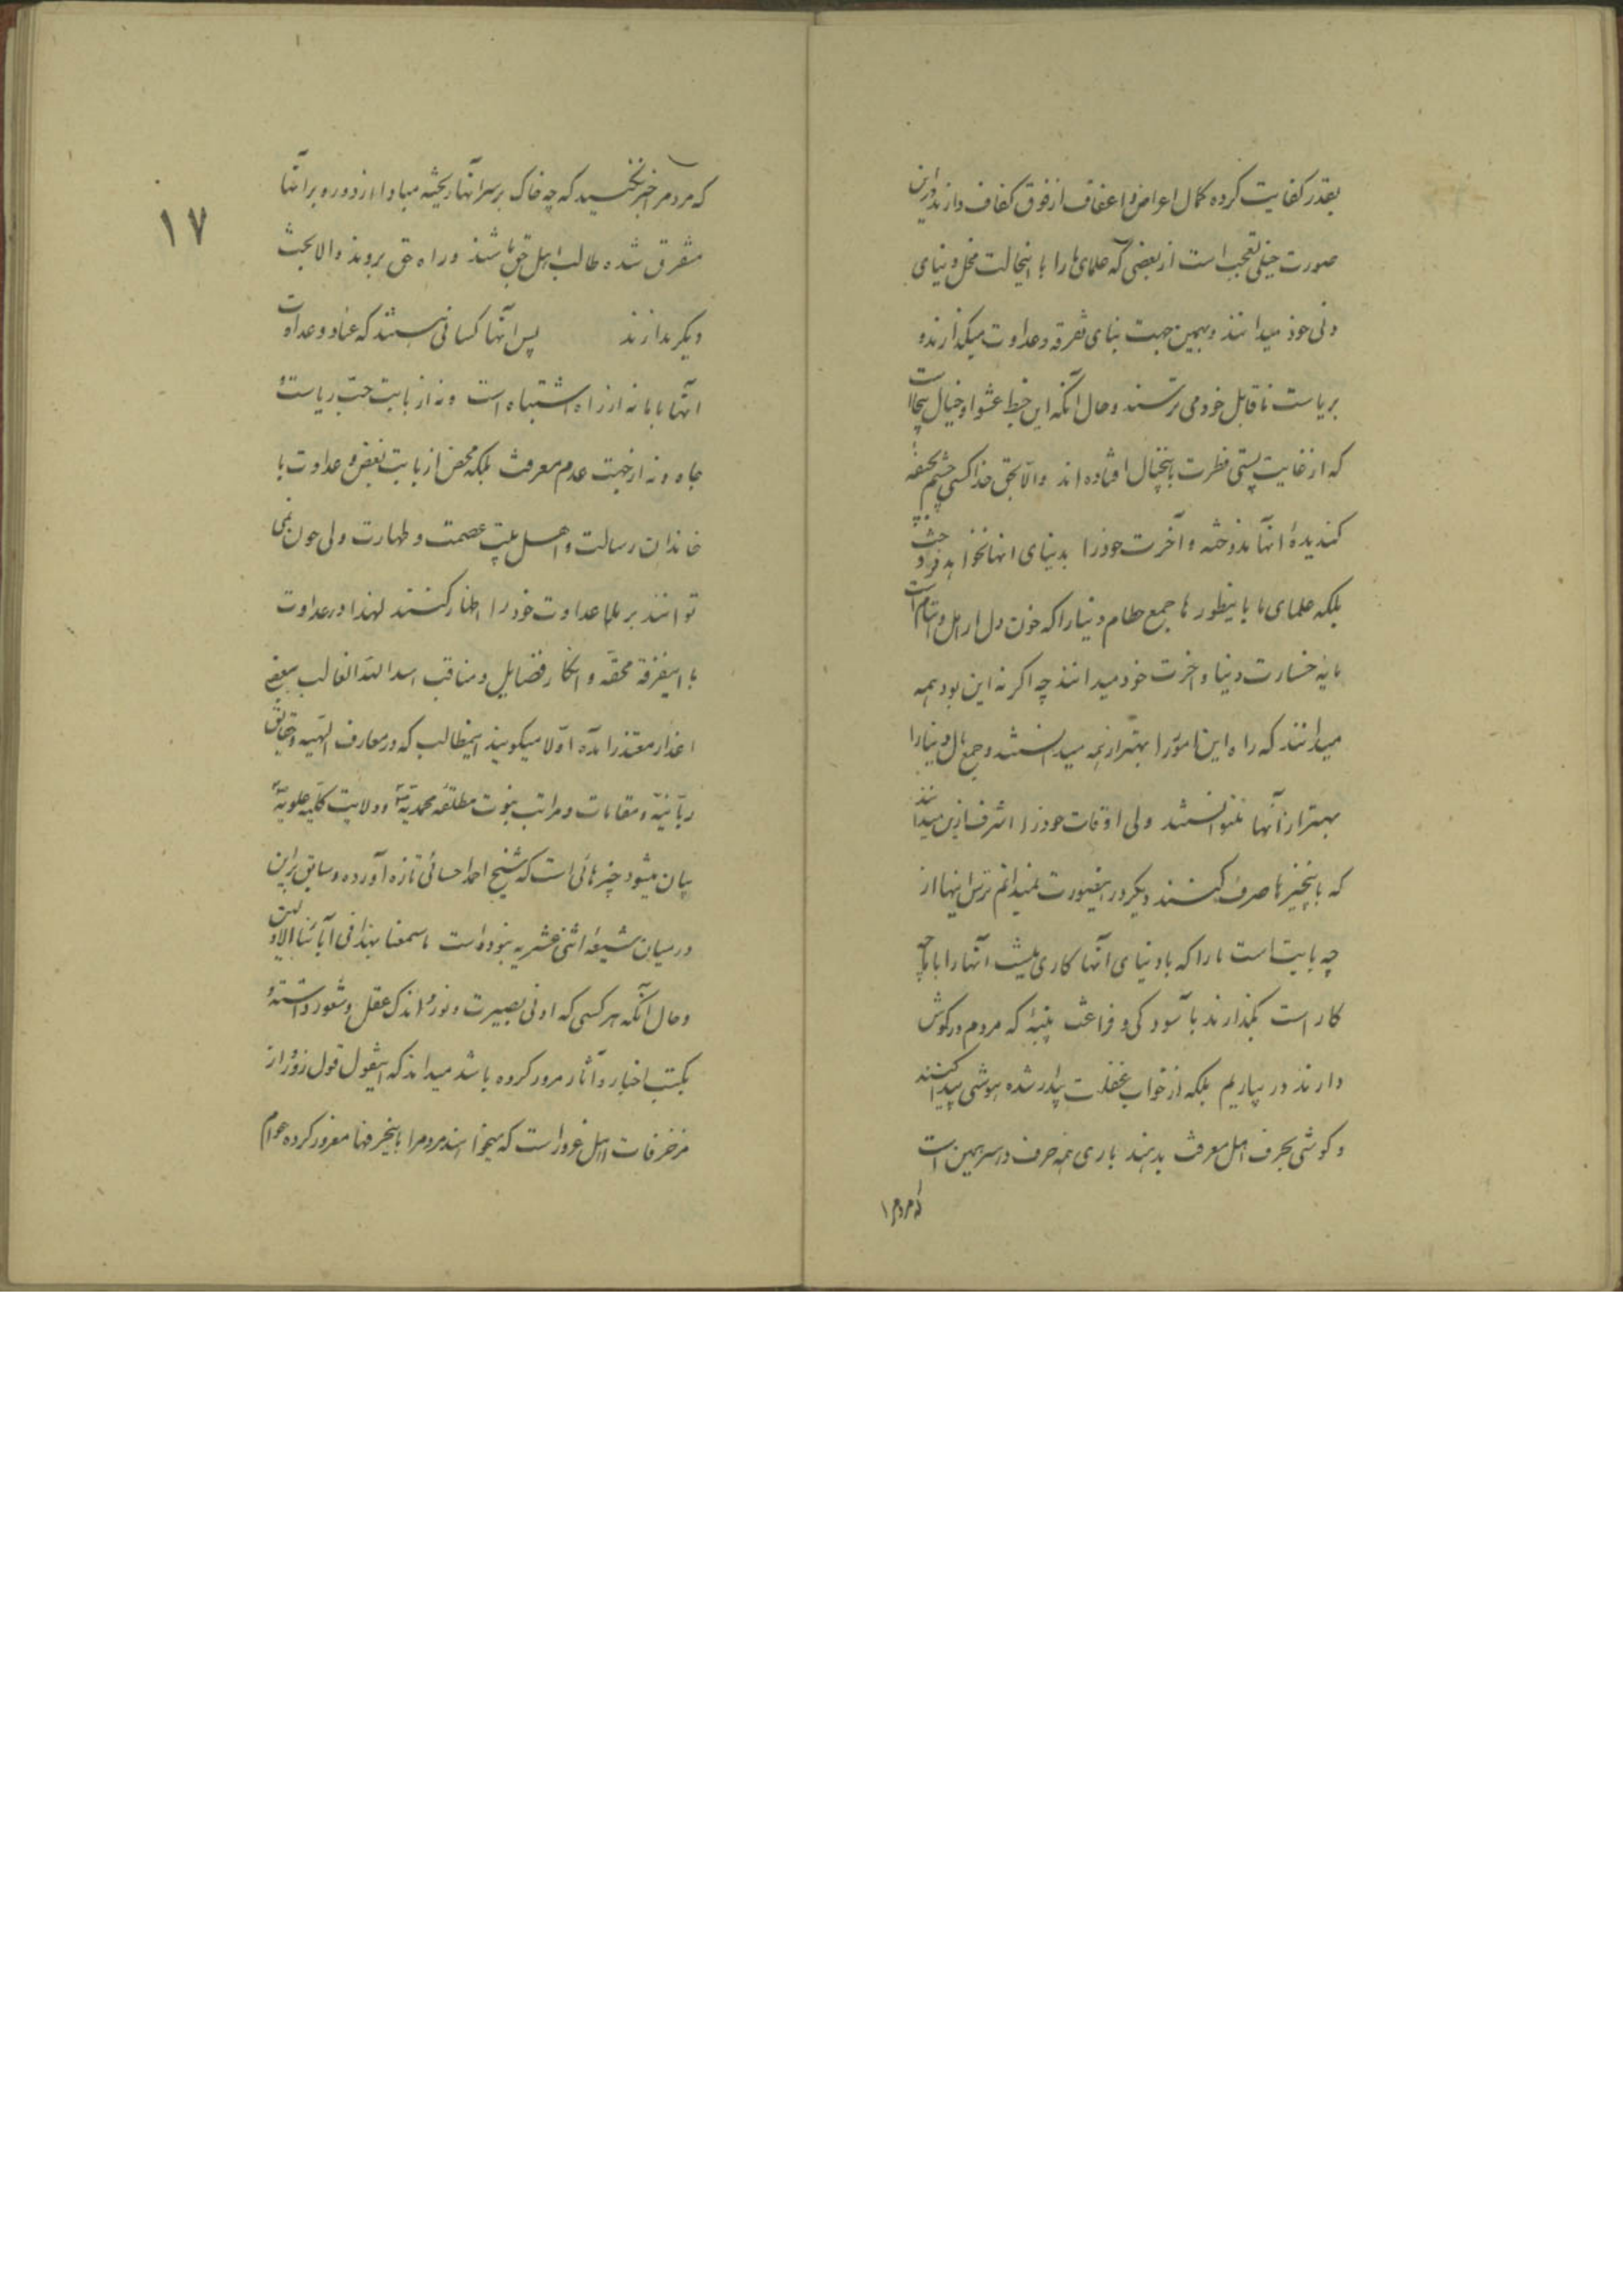 بقدر کفایت کرده کمال اعراض و اعفاف از فوق کفاف دارند در این
صورت خیلی تعجب است از بعضی که علمای ما را با اینحالت مخل دنیای
دنی خود میدانند و بهمین جهت بنای تفرقه و عداوت میگذارند و
بریاست ناقابل خود می ترسند و حال آنکه این خبط عشوا و خیال بیجا است
که از غایت پستی فطرت باینخیال افتاده اند والا بحق خدا کسی چشم بجیفه
کندیدهٔ آنها ندوخته و آخرت خود را بدنیای آنها نخواهد فروخت
بلکه علمای ما باینطور ها جمع حطام دنیا را که خون دل ارامل و ایتام است
مایه خسارت دنیا و اخرت خود میدانند چه اگر نه این بود همه
میدانند که راه این امور را بهتر از همه میدانستند و جمع مال دنیا را
بهتر از آنها میتوانستند ولی اوقات خود را اشرف ازین میدانند
که باینچیز ها صرف کنند دیگر در اینصورت نمیدانم ترس اینها از
چه بابت است ما را که با دنیای آنها کاری نیست آنها را با ما چه
کار است بگذارند با سودکی و فراغت پنبهٔ که مردم در گوش
دارند در بیاریم بلکه از خواب غفلت بیدار شده هوشی پیدا کنند
و گوشی بحرف اهل معرفت بدهند باری همه حرف در سر همین است
که مردم را
۱۷
که مردم خبر نخسبید که چه خاک بر سر آنها ریخته مبادا از دوره بر آنها
متفرق شده طالب اهل حق باشند و راه حق بروند والا بحث
دیگر ندارند پس آنها کسانی هستند که عناد و عداوت
آنها با ما نه از راه اشتباه است و نه از بابت حب ریاست و
جاه و نه از جهت عدم معرفت بلکه محض از بابت بغض و عداوت با
خاندان رسالت و اهل بیت عصمت و طهارت ولی چون نمی
توانند بر ملا عداوت خود را اظهار کنند لهذا در عداوت
با اینفرقه محقه و انکار فضایل و مناقب اسدالله الغالب ببعض
اعذار معتذر آمده اولا میکویند اینمطالب که در معارف الهیه و حقایق
ربانیه و مقامات و مراتب نبوت مطلقه محمدیه و ولایت کلیه علویه
بیان میشود چیزهائی است که شیخ احمد احسائی تازه آورده و سابق بر این
در میان شیعهٔ اثنی عشریه نبوده است ما سمعنا بهذا فی آبائنا الاولین
و حال آنکه هر کسی که ادنی بصیرت و نور و اندک عقل و شعور داشته و
بکتب اخبار و آثار مرور کرده باشد میداند که اینقول قول زور و از
مزخرفات اهل غرور است که میخواهند مردم را باینحرفها مغرور کرده عوام